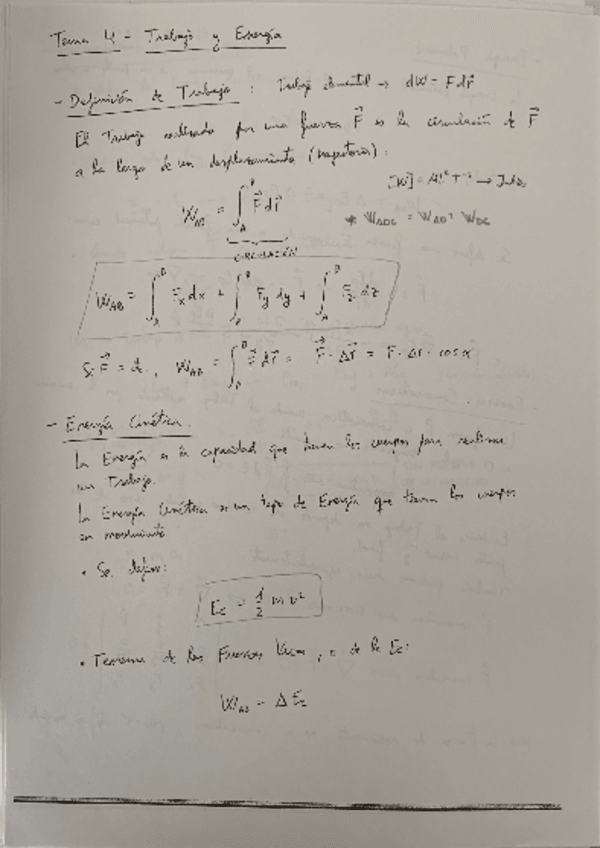 Tema 4 - Trabajo y Energía
- Definición de Trabajo : Trabajo elemental → dW = F⃗ dr⃗
El Trabajo realizado por una fuerza F⃗ es la circulación de F⃗
a lo largo de un desplazamiento (trayectoria):
[W] = → Julio
W_AB = ∫_A^B F⃗ dr⃗
CIRCULACIÓN
* W_ADC = W_AD + W_DC
W_AB = ∫_A^B F_x dx + ∫_A^B F_y dy + ∫_A^B F_z dz
Si F⃗ = cte, W_AB = ∫_A^B F⃗ dr⃗ = F⃗ · Δr⃗ = F · Δr · cos α
- Energía Cinética.
La Energía es la capacidad que tienen los cuerpos para realizar
un Trabajo.
La Energía Cinética es un tipo de Energía que tienen los cuerpos
en movimiento
• Se define:
E_c = 1/2 m v²
• Teorema de las Fuerzas Vivas, o de la E_c:
W_AB = Δ E_c